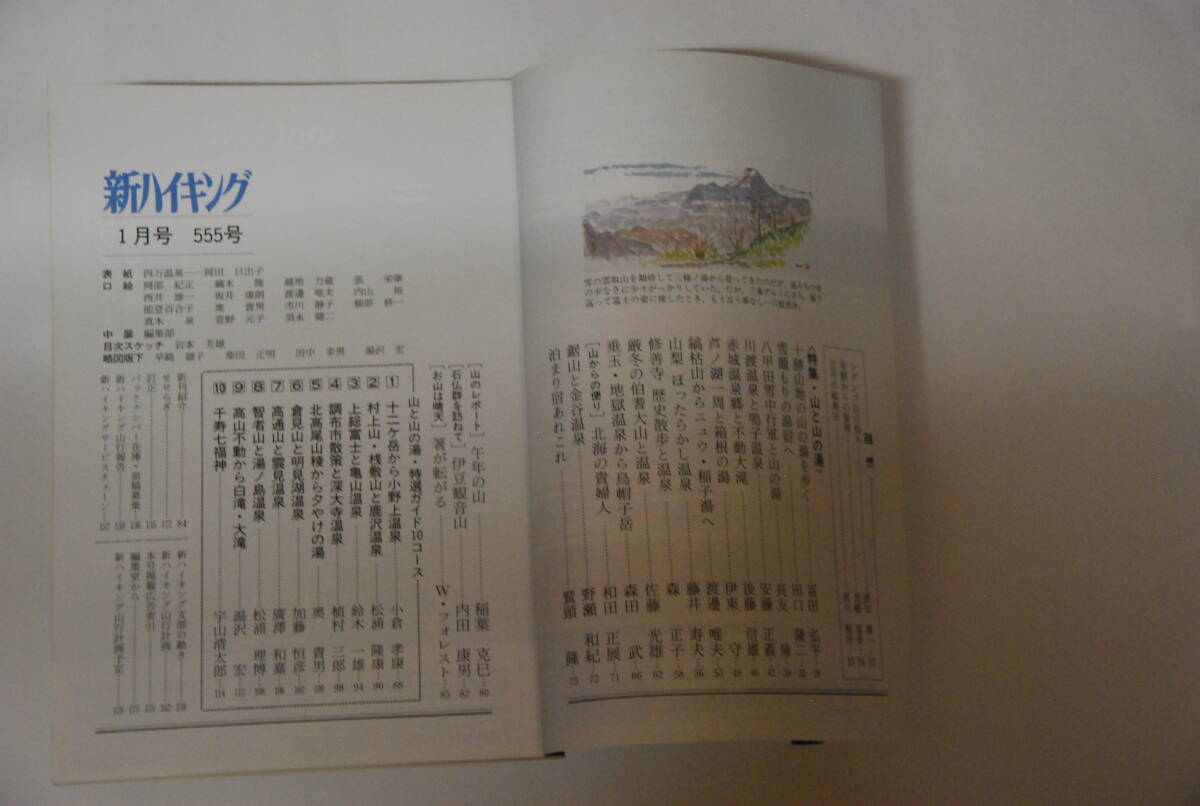 雪の雲取山を期待して三條ノ湯から登ってきたのだが、
随想
〈特集・山と山の湯〉
十勝山地の山の湯を歩く 冨田 弘平 28
雪籠もりの湯宿へ 田口 隆二
八甲田雪中行軍と山の湯 長友
川渡温泉と鳴子温泉 安藤 正義 42
赤城温泉郷と不動大滝 後藤 信雄
芦ノ湖一周と箱根の湯 伊東 守
縞枯山からニュウ・稲子湯へ 渡邊 唯夫 53
山梨 ほったらかし温泉 藤井 寿夫 56
修善寺 歴史散歩と温泉 森 正子 58
厳冬の伯耆大山と温泉 佐藤 光雄 62
垂玉・地獄温泉から烏帽子岳 森田 武 66
[山からの便り] 北海の貴婦人 和田 正展 71
鋸山と金谷温泉 野瀬 和紀 72
泊まり宿あれこれ 鷲頭 隆 75
新ハイキング
1月号 555号
表紙 四万温泉──岡田 日出子
口絵 岡部 紀正 鏑木 隆 越地 力蔵 張 栄準
西井 雄一 坂井 康朗 渡邊 唯夫 内山 裕
能登百合子 奥 貴男 市川 静子 柳原 修一
真木 泉 菅野 元子 須永 健二
中扉 編集部
目次スケッチ 岩本 芳雄
略図版下 早崎 嶺子 柴田 正明 田中 幸男 湯沢 宏
[山のレポート] 午年の山 稲葉 克巳 80
[石仏群を訪ねて] 伊豆観音山 内田 康男 82
[お山は晴天] 箸が転がる W・フォレスト 85
山と山の湯・特選ガイド10コース
1 十二ケ岳から小野上温泉 小倉 孝康 88
2 村上山・桟敷山と鹿沢温泉 松浦 隆康 90
3 上総富士と亀山温泉 鈴木 一雄 94
4 調布市散策と深大寺温泉 植村 三郎 98
5 北高尾山稜から夕やけの湯 奥 貴男 100
6 倉見山と明見湖温泉 加藤 恒彦 102
7 高通山と雲見温泉 廣澤 和嘉 106
8 智者山と湯ノ島温泉 松浦 理博 108
9 高山不動から白滝・大滝 湯沢 宏 112
10 千寿七福神 宇山清太郎 114
新刊紹介 84
せせらぎ 122
訂正 135
バックナンバー在庫・原稿募集 136
新ハイキング山行報告 138
新ハイキングサービスチェーン 152
新ハイキング支部の動き 158
新ハイキング山行計画 162
本号掲載広告索引 175
編集室から 177
新ハイキング山行計画予定 178